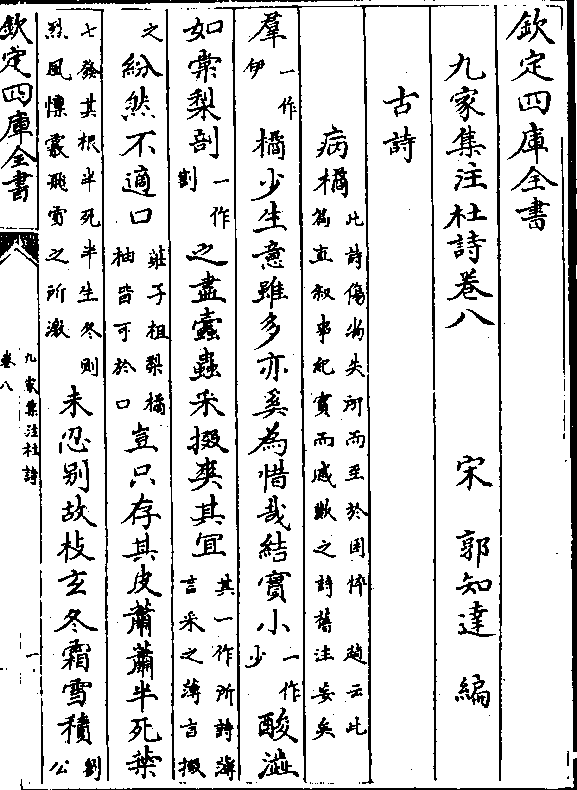 欽定四庫全書
九家集注杜詩卷八
宋 郭知達 編
古詩
病橘 此詩傷物失所而至於困悴 趙云此為直叙事紀實而感歎之詩舊注妄矣
羣一作伊橘少生意雖多亦奚為惜哉結實小一作少酸澁
如棠梨剖一作劃之盡蠹蟲采掇爽其宜其一作所詩薄言采之薄言掇
之紛然不適口莊子柤梨橘柚皆可於口豈只存其皮蕭蕭半死葉
七發其根半死半生冬則烈風慓霰飛雪之所激未忍别故枝玄冬霜雪積劉公
欽定四庫全書
九家集注杜詩
卷八
一